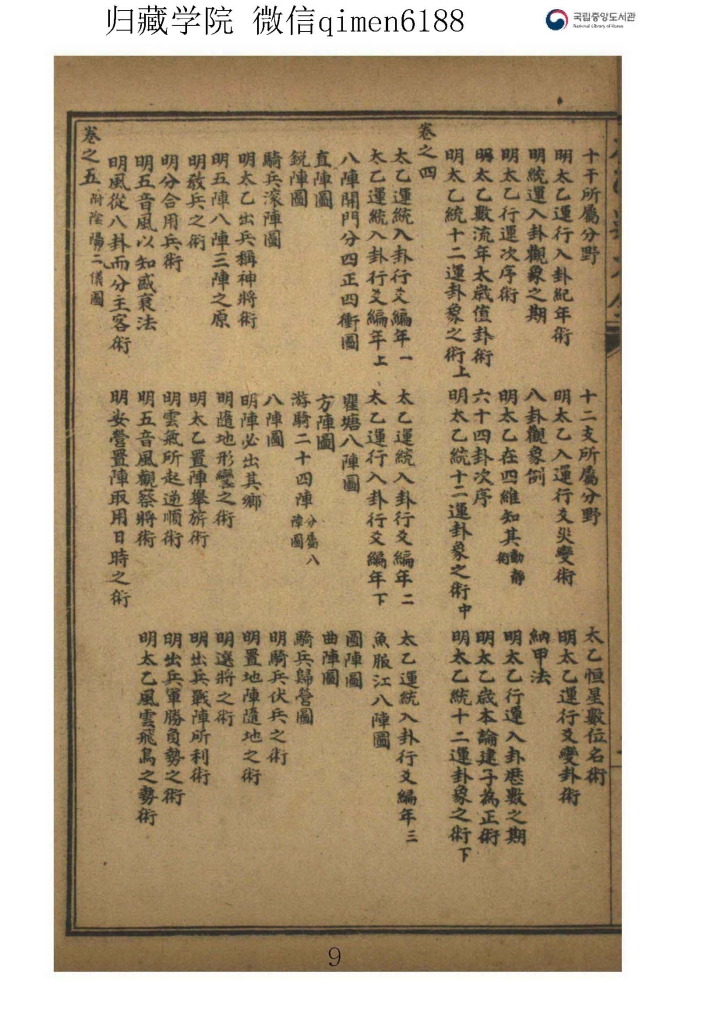 归藏学院 微信qimen6188
국립중앙도서관
National Library of Korea
十干所屬分野 十二支所屬分野 太乙恒星數位名術
明太乙運行入卦紀年術 明太乙入運行爻災變術 明太乙運行爻變卦術
明統運入卦觀象之期 八卦觀象例 納甲法
明太乙行運次序術 明太乙在四維知其動靜術 明太乙行運入卦曆數之期
明太乙數流年太歲值卦術 六十四卦次序 明太乙歲本論建子為正術
明太乙統十二運卦象之術上 明太乙統十二運卦象之術中 明太乙統十二運卦象之術下
卷之四
太乙運統入卦行爻編年一 太乙運統入卦行爻編年二 太乙運統入卦行爻編年三
太乙運統入卦行爻編年上 太乙運行入卦行爻編年下 魚服江八陣圖
八陣開門分四正四衝圖 瞿塘八陣圖 圓陣圖
直陣圖 方陣圖 曲陣圖
銳陣圖 游騎二十四陣分屬八陣圖 騎兵歸營圖
騎兵滾陣圖 八陣圖 明騎兵伏兵之術
明太乙出兵稱神將術 明陣必出其鄉 明置地陣隨地之術
明五陣八陣三陣之原 明隨地形變之術 明選將之術
明教兵之術 明太乙置陣舉旂術 明出兵戰陣所利術
明分合用兵術 明雲氣所起逆順術 明出兵軍勝負勢之術
明五音風以知盛衰法 明五音風觀察將術 明太乙風雲飛鳥之勢術
明風從八卦而分主客術 明安營置陣取用日時之術
卷之五附陰陽二儀圖
9